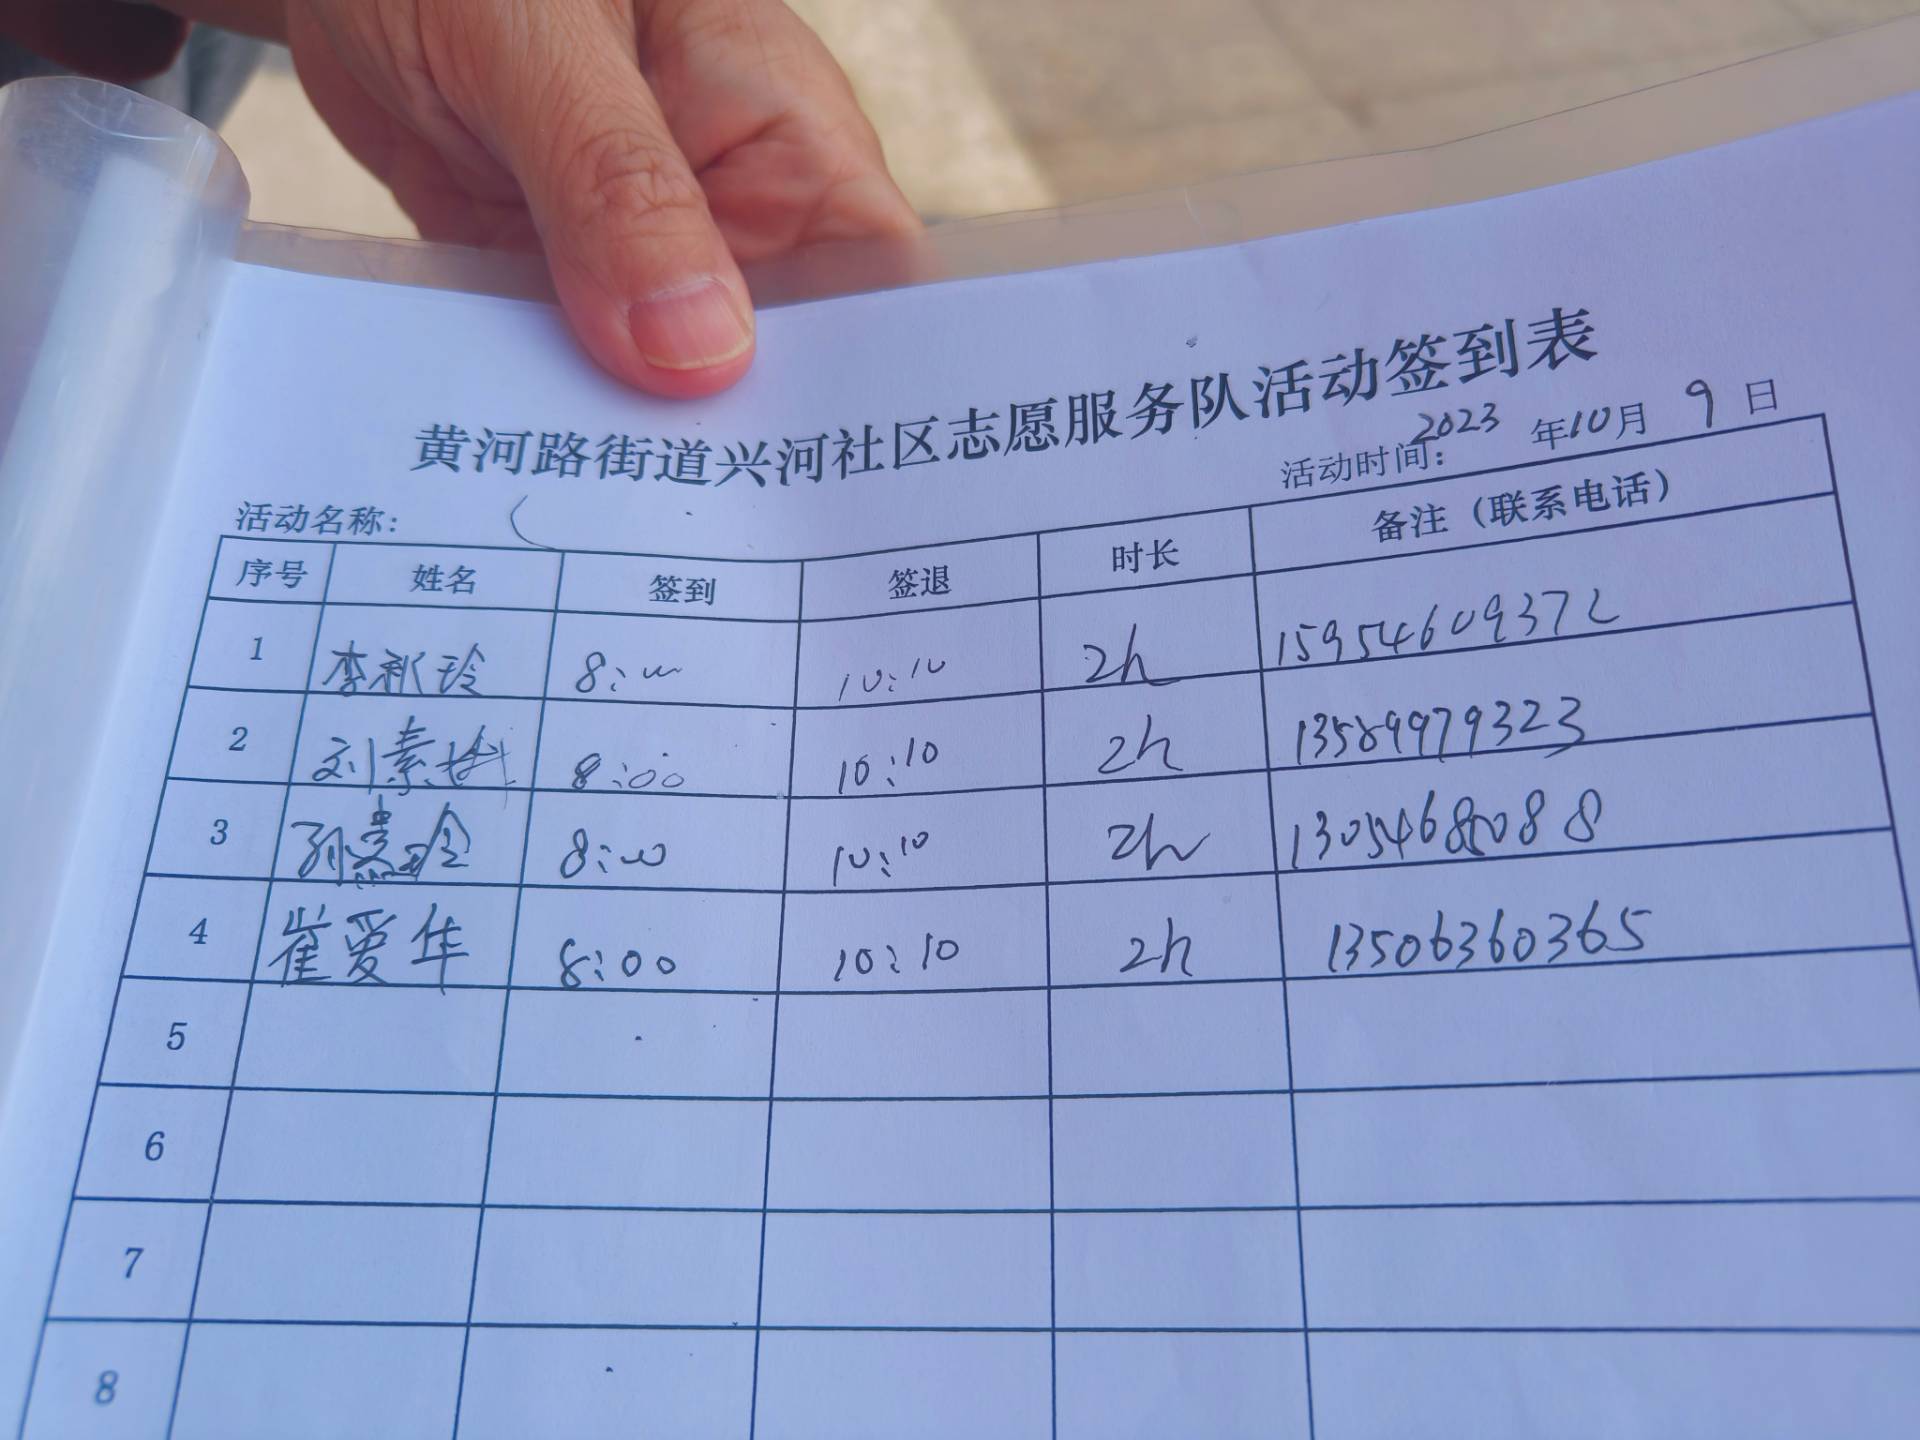 黄河路街道兴河社区志愿服务队活动签到表
活动时间: 2023 年10月 9 日
活动名称:
序号 姓名 签到 签退 时长 备注（联系电话）
1 李秋玲 8:00 10:10 2h 15954609372
2 刘素 8:00 10:10 2h 13589979323
3 孙 8:00 10:10 2h
4 崔爱华 8:00 10:10 2h 13506360365
5
6
7
8